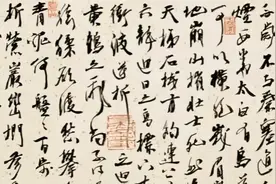 不與秦塞通
煙西當太白有鳥
可以橫絕峨眉巔
地崩山摧壯士死然
天梯石棧相鉤連上
六龍迴日之高標下
衝波逆折之迴
黃鶴之飛尚不得
猱欲度愁攀
青泥何盤盤百步
折縈巖巒捫參